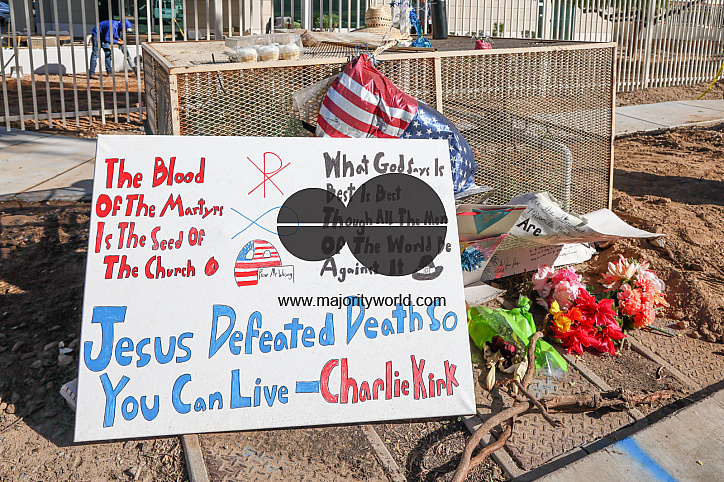 The Blood
Of The Martyrs
Is The Seed Of
The Church
What God Says Is
Best Is Best
Though All The Men
Of The World Be
Against It
Prove Me Wrong
www.majorityworld.com
Jesus Defeated Death So
You Can Live – Charlie Kirk
Are